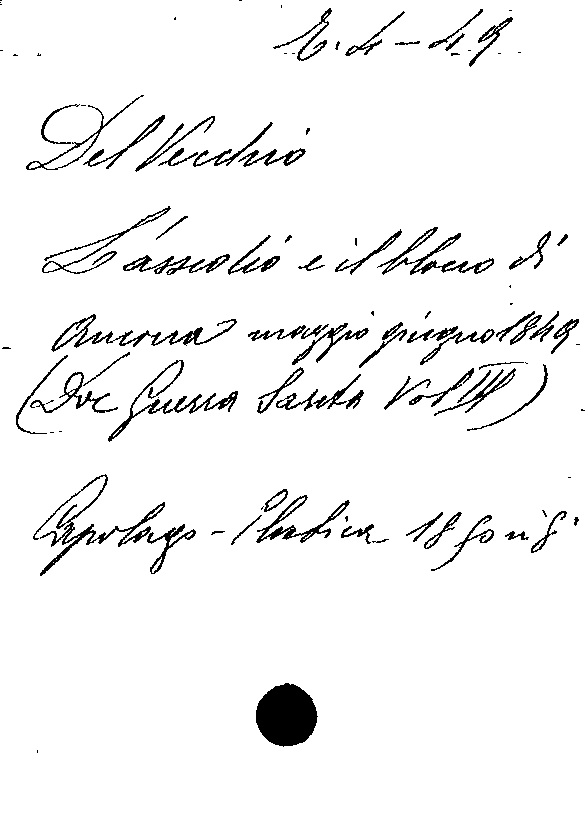 E. 4 - 49
Del Vecchio
L'assedio e il blocco di
Ancona maggio giugno 1849
(Doc Guerra Santa Vol III)
Capolago - Elvetica 1850 in 8°